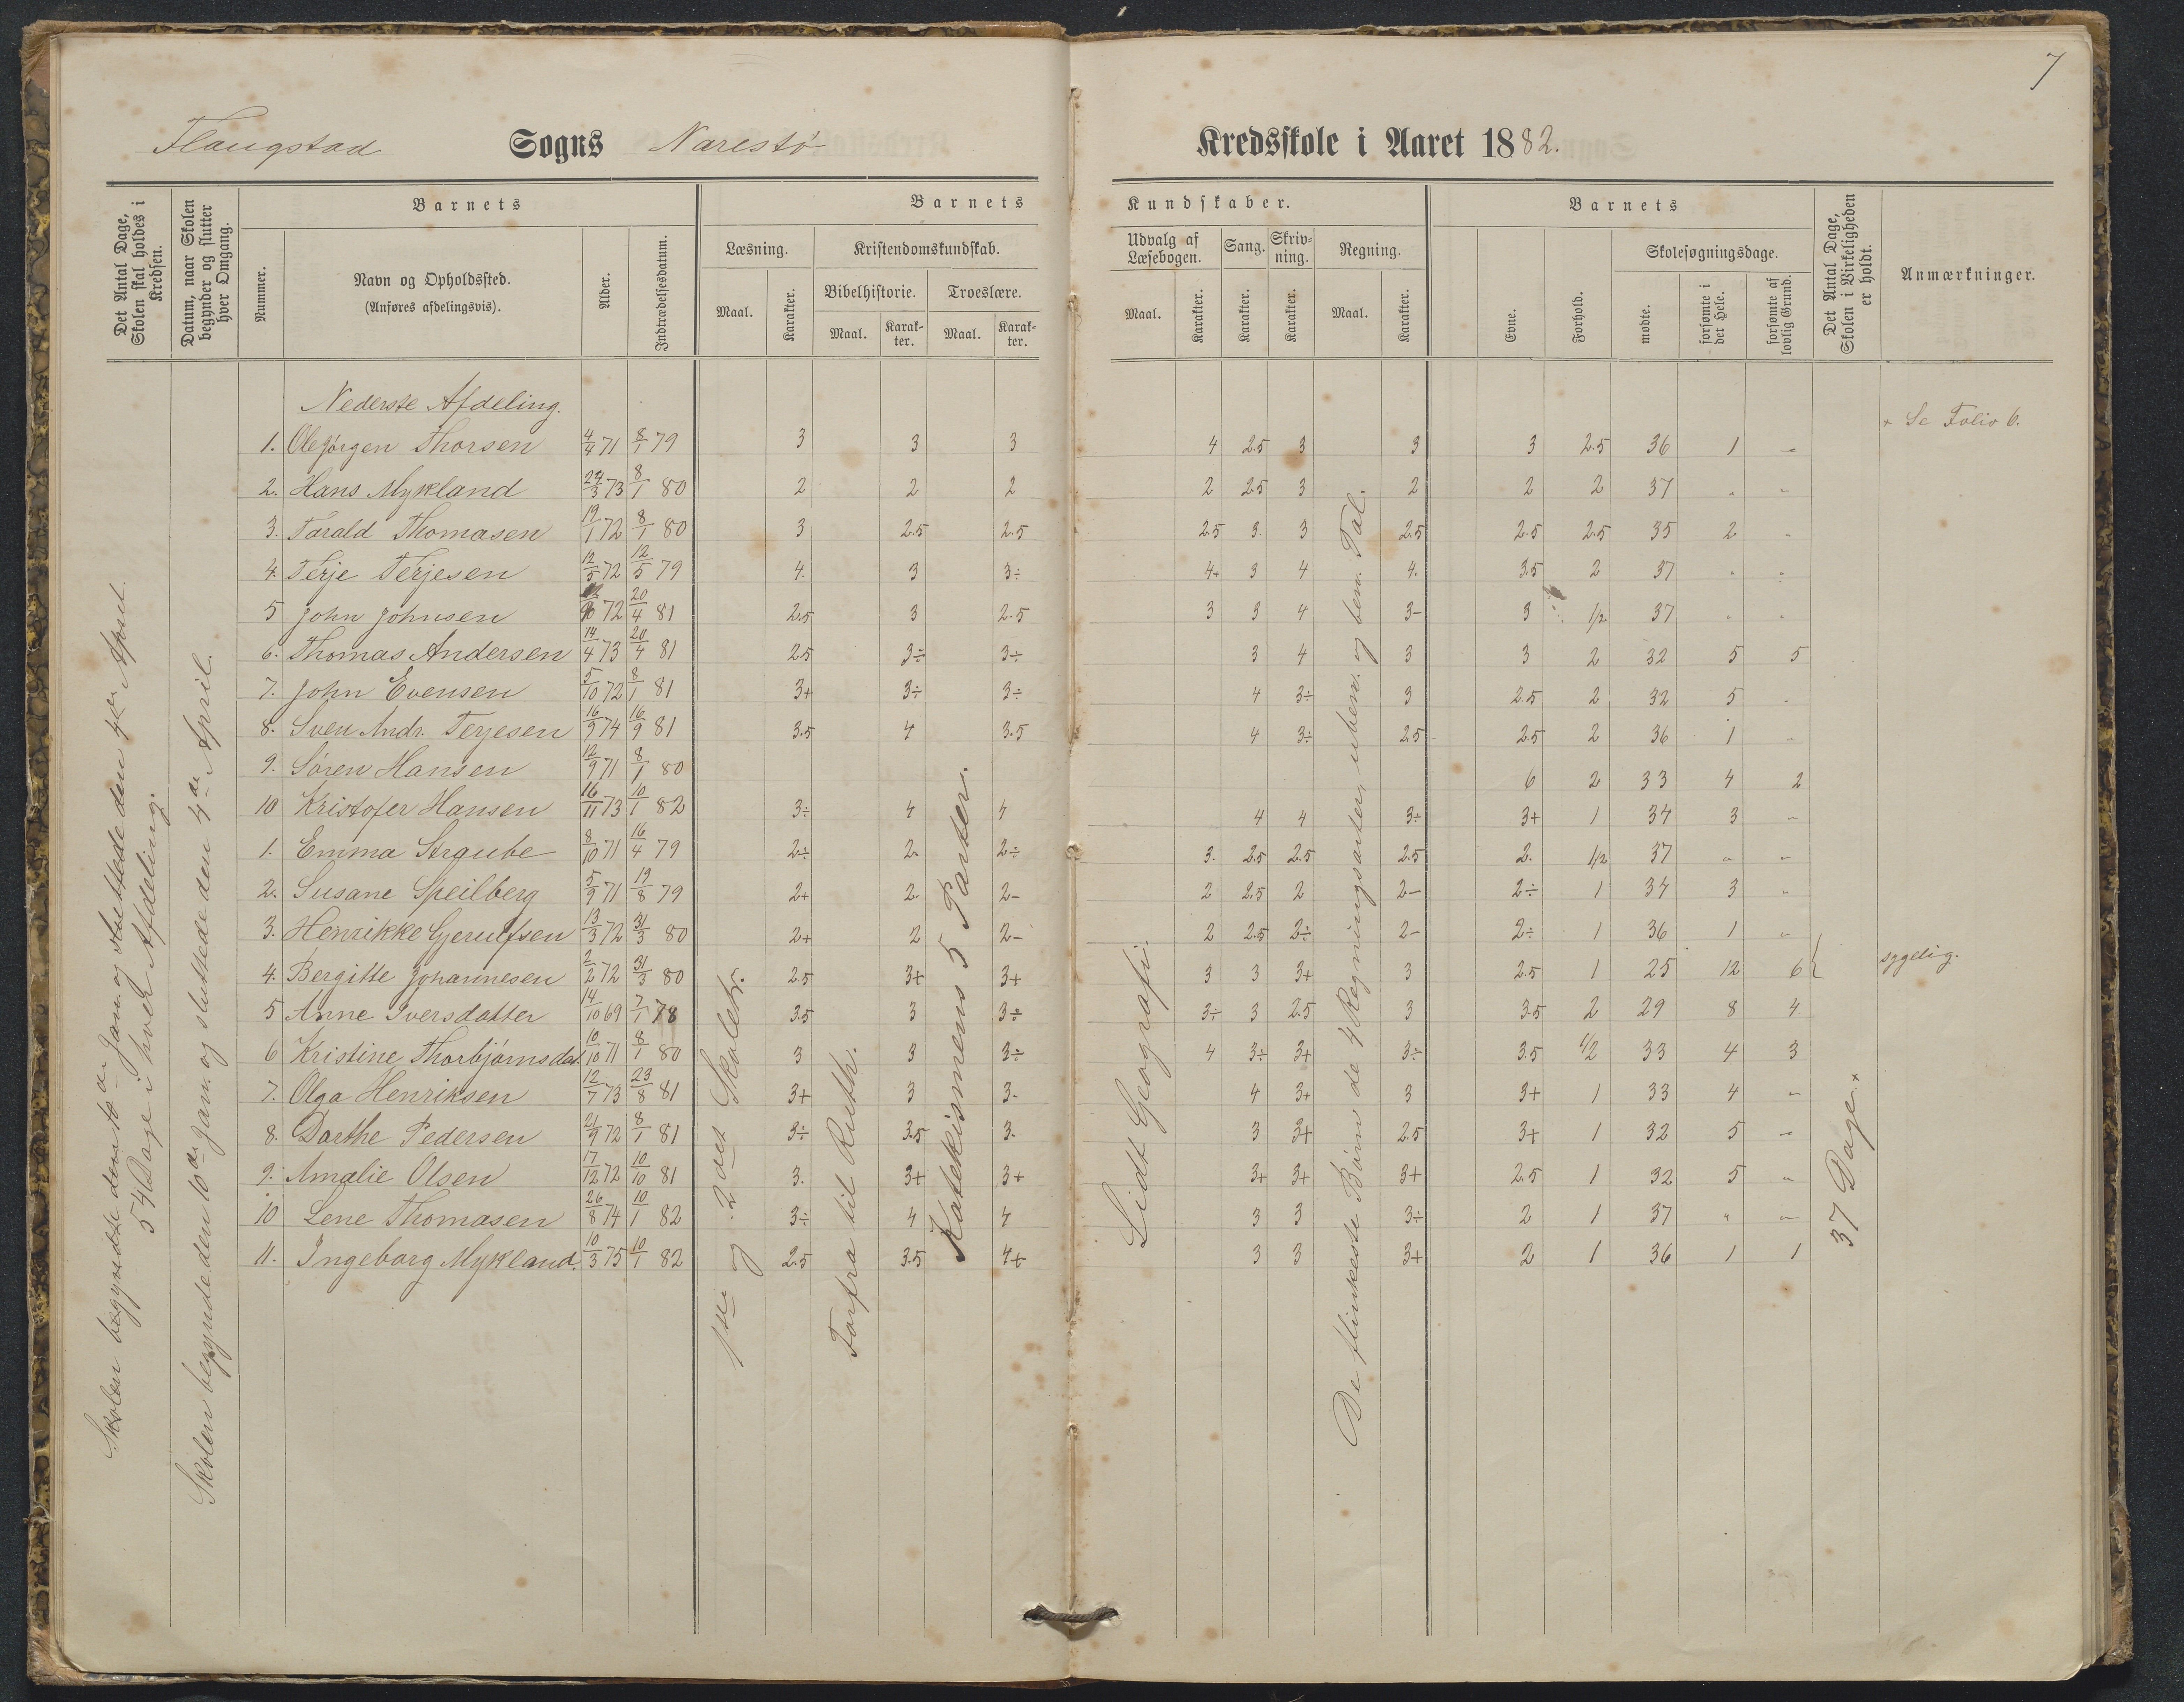 7
Flangstad Sogns Narestø Kredsskole i Aaret 1882.
Det Antal Dage, Skolen skal holdes i Kredsen.
Datum, naar Skolen begynder og slutter hver Omgang.
Barnets
Nummer.
Navn og Opholdssted.
(Anføres afdelingsvis).
Alder.
Indtrædelsesdatum.
Barnets Kundskaber.
Læsning.
Maal. Karakter.
Kristendomskundskab.
Bibelhistorie. Troeslære.
Maal. Karakter. Maal. Karakter.
Udvalg af Læsebogen.
Maal. Karakter.
Sang. Karakter.
Skrivning. Karakter.
Regning.
Maal. Karakter.
Barnets
Evne. Forhold.
Skolesøgningsdage.
mødte. forsømte i det Hele. forsømte af lovlig Grund.
Det Antal Dage, Skolen i Virkeligheden er holdt.
Anmærkninger.
Skolen begyndte den 10de Jan. og sluttede den 4de April.
54 Dage i hver Afdeling.
Skolen begyndte den 10de Jan. og sluttede den 4de April.
1ste og 2det Skoletr.
Forfra til Ruth.
Katekismens 5 Parter.
Lidt Geografi.
De flinkeste Børn de 4 Regningsarter, uben. og ben. Tal.
37 Dage. ×
Nederste Afdeling.
× Se Folio 6.
1. Ole Jørgen Thorsen 4/4 71 8/1 79 3 3 3 4 2.5 3 3 3 2.5 36 1 "
2. Hans Mykland 24/3 73 8/1 80 2 2 2 2 2.5 3 2 2 2 37 " "
3. Tarald Thomasen 19/1 72 8/1 80 3 2.5 2.5 2.5 3 3 2.5 2.5 2.5 35 2 "
4. Terje Terjesen 12/5 72 12/5 79 4. 3 3÷ 4+ 3 4 4. 3.5 2 37 " "
5 John Johnsen 72 20/4 81 2.5 3 2.5 3 3 4 3- 3 1/2 37 " "
6. Thomas Andersen 14/4 73 20/4 81 2.5 3÷ 3÷ 3 4 3 3 2 32 5 5
7. John Evensen 5/10 72 8/1 81 3+ 3÷ 3÷ 4 3÷ 3 2.5 2 32 5 "
8. Sven Andr. Terjesen 16/9 74 16/9 81 3.5 4 3.5 4 3÷ 2.5 2.5 2 36 1 "
9. Søren Hansen 12/9 71 8/1 80 6 2 33 4 2
10 Kristofer Hansen 16/11 73 10/1 82 3÷ 4 4 4 4 3÷ 3+ 1 34 3 "
1. Emma Straube 8/10 71 16/4 79 2÷ 2. 2÷ 3. 2.5 2.5 2.5 2. 1/2 37 " "
2. Susane Speilberg 5/9 71 19/8 79 2+ 2 2- 2 2.5 2 2- 2÷ 1 34 3 "
3. Henrikke Gjerulfsen 13/3 72 31/3 80 2+ 2 2- 2 2.5 2÷ 2- 2÷ 1 36 1 "
4. Bergitte Johannesen 2/2 72 31/3 80 2.5 3+ 3+ 3 3 3+ 3 2.5 1 25 12 6 sygelig.
5 Anne Iversdatter 14/10 69 7/1 78 3.5 3 3÷ 3÷ 3 2.5 3 3.5 2 29 8 4
6 Kristine Thorbjørnsdat. 10/10 71 8/1 80 3 3 3÷ 4 3÷ 3+ 3÷ 3.5 1/2 33 4 3
7. Olga Henriksen 12/7 73 23/8 81 3+ 3 3- 4 3+ 3 3+ 1 33 4 "
8. Dorthe Pedersen 21/9 72 8/1 81 3÷ 3.5 3- 3 3+ 2.5 3+ 1 32 5 "
9. Amalie Olsen 17/12 72 10/10 81 3. 3+ 3+ 3+ 3+ 3+ 2.5 1 32 5 "
10 Lene Thomasen 26/8 74 10/1 82 3÷ 4 4 3 3 3÷ 2 1 37 " "
11. Ingeborg Mykland. 10/3 75 10/1 82 2.5 3.5 4+ 3 3 3+ 2 1 36 1 1